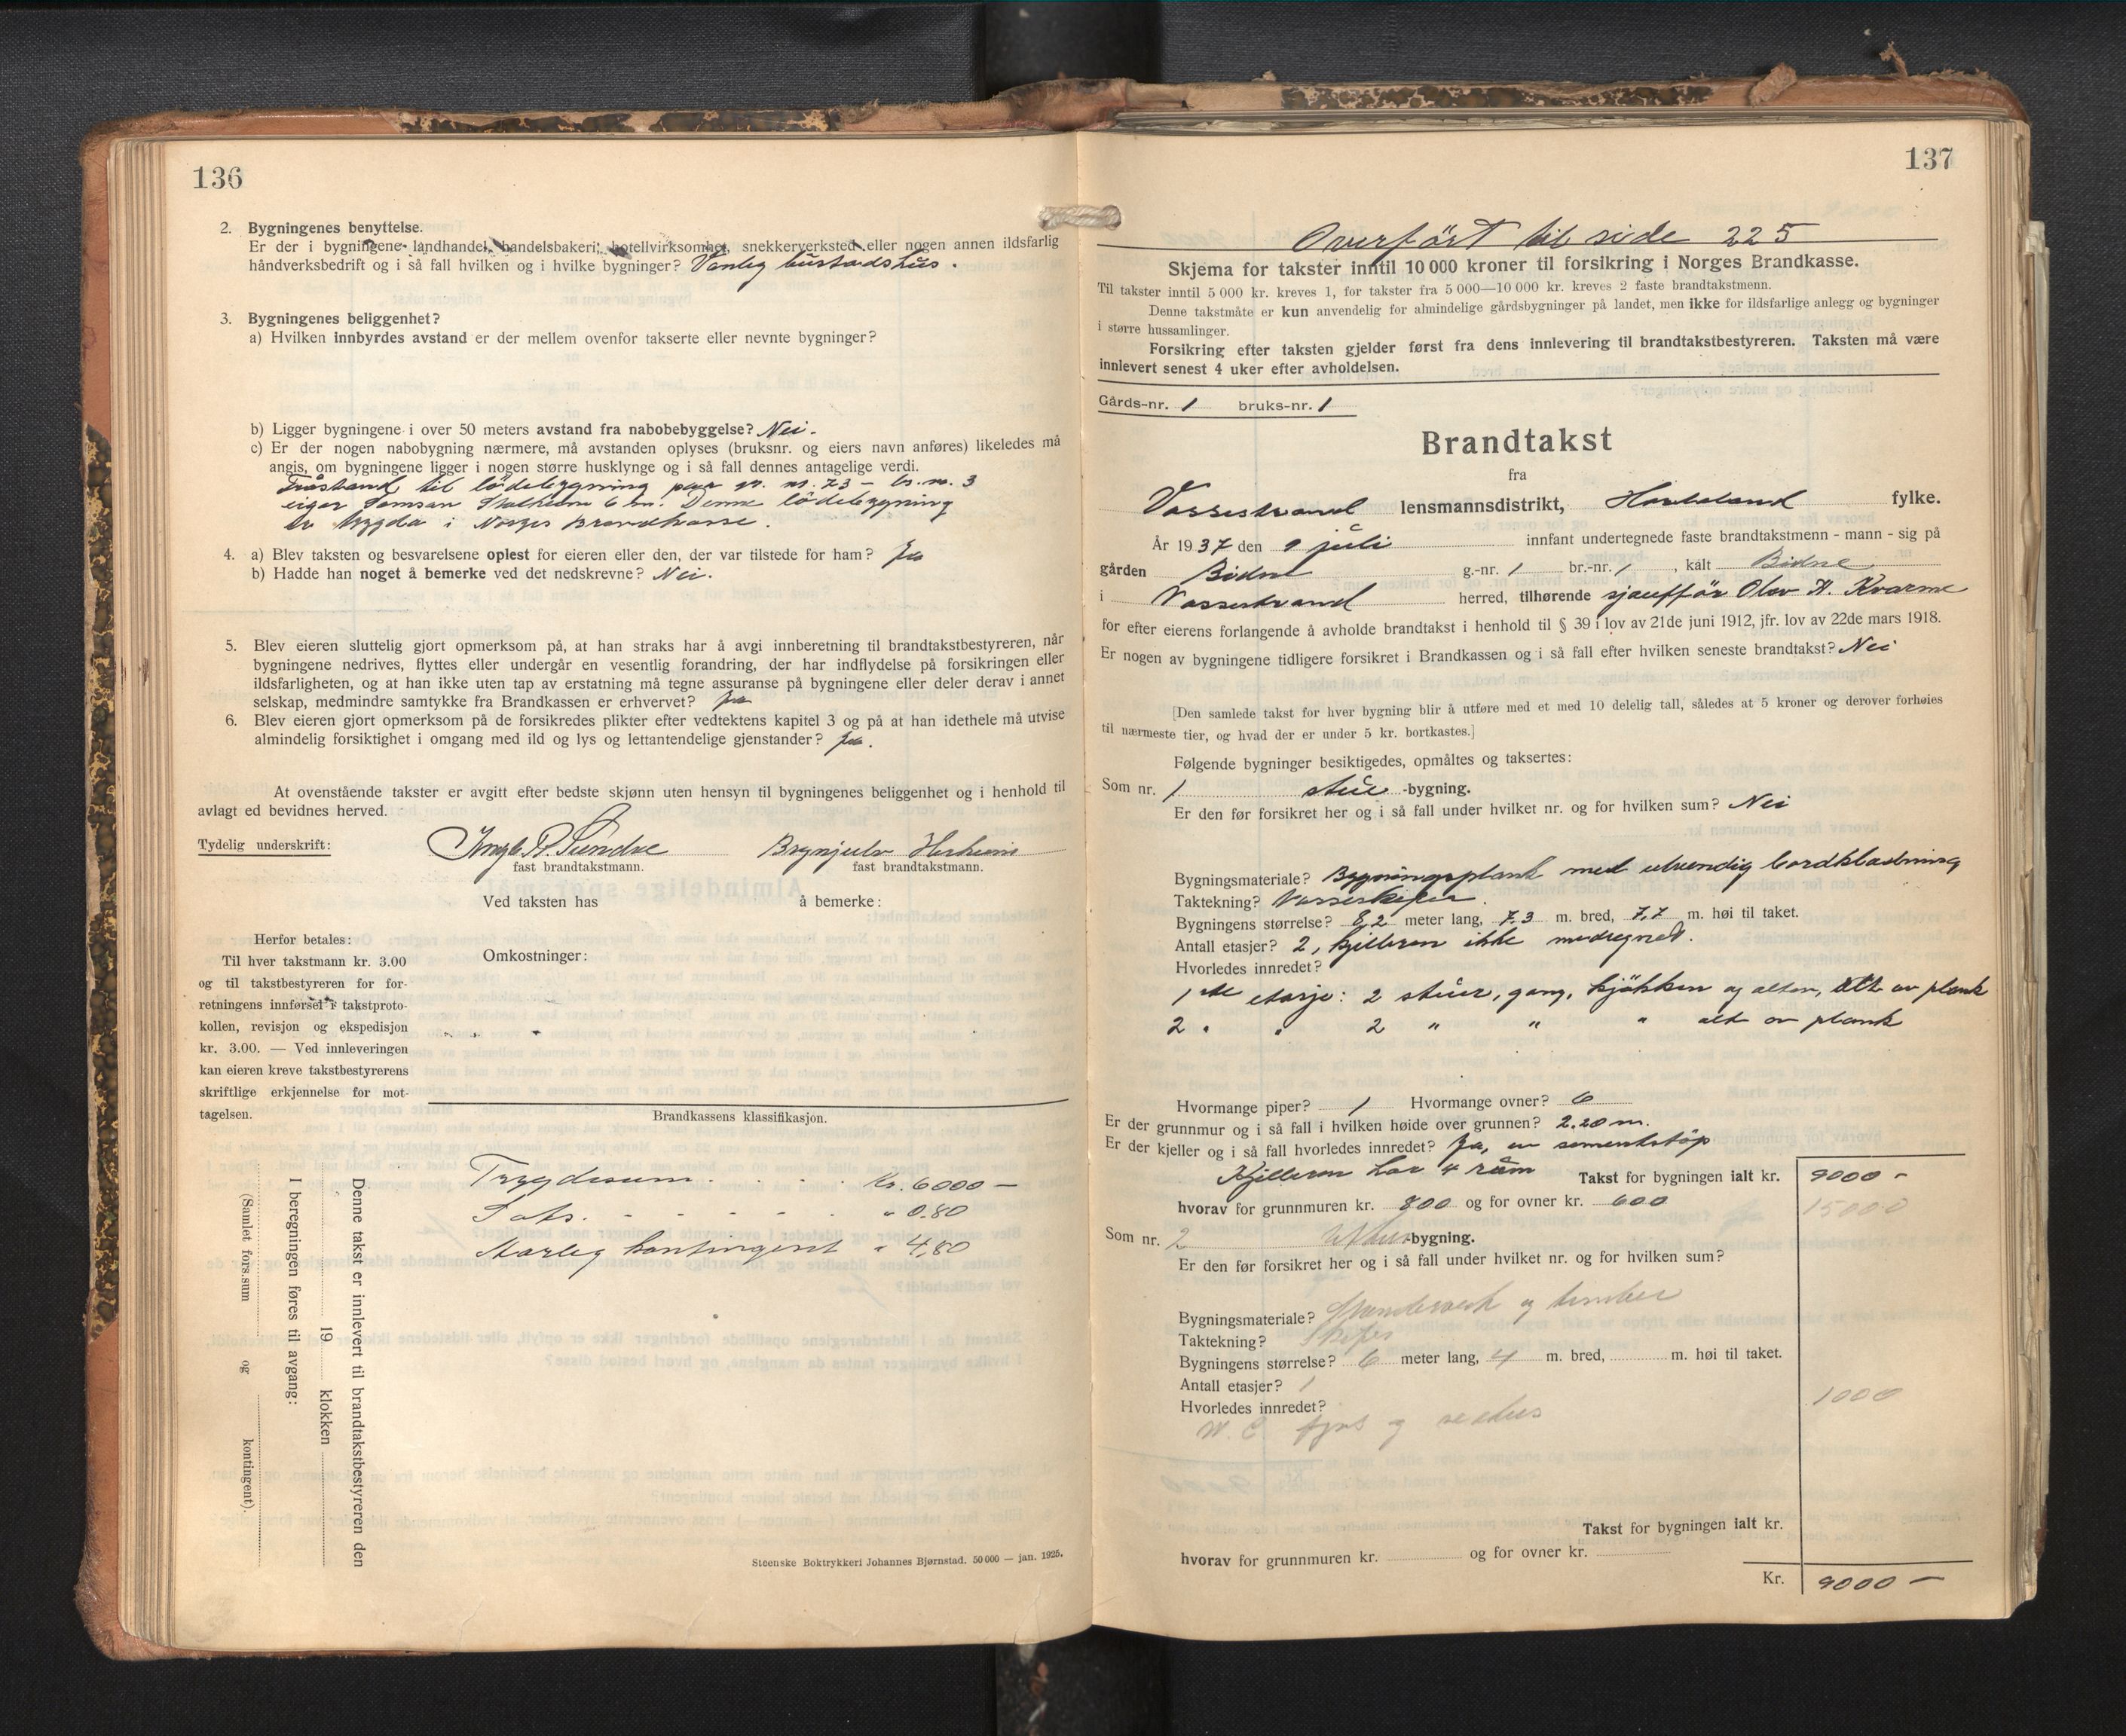 136
2. Bygningenes benyttelse.
Er der i bygningene landhandel, handelsbakeri, hotellvirksomhet, snekkerverksted eller nogen annen ildsfarlig
håndverksbedrift og i så fall hvilken og i hvilke bygninger? Vanleg bustadshus.
3. Bygningenes beliggenhet?
a) Hvilken innbyrdes avstand er der mellem ovenfor takserte eller nevnte bygninger?
b) Ligger bygningene i over 50 meters avstand fra nabobebyggelse? Nei.
c) Er der nogen nabobygning nærmere, må avstanden oplyses (bruksnr. og eiers navn anføres) likeledes må
angis, om bygningene ligger i nogen større husklynge og i så fall dennes antagelige verdi.
Fråstand til lödebygning paa gr. nr. 73 - br. nr. 3
eigar Samson Stalheim 6 m. Denne lödebygning
er trygda i Norges Brandkasse.
4. a) Blev taksten og besvarelsene oplest for eieren eller den, der var tilstede for ham? Ja
b) Hadde han noget å bemerke ved det nedskrevne? Nei.
5. Blev eieren sluttelig gjort opmerksom på, at han straks har å avgi innberetning til brandtakstbestyreren, når
bygningene nedrives, flyttes eller undergår en vesentlig forandring, der har indflydelse på forsikringen eller
ildsfarligheten, og at han ikke uten tap av erstatning må tegne assuranse på bygningene eller deler derav i annet
selskap, medmindre samtykke fra Brandkassen er erhvervet? Ja
6. Blev eieren gjort opmerksom på de forsikredes plikter efter vedtektens kapitel 3 og på at han idethele må utvise
almindelig forsiktighet i omgang med ild og lys og lettantendelige gjenstander? Ja.
At ovenstående takster er avgitt efter bedste skjønn uten hensyn til bygningenes beliggenhet og i henhold til
avlagt ed bevidnes herved.
Tydelig underskrift: Ingb. P. Sundve Brynjulv Herheim
fast brandtakstmann. fast brandtakstmann.
Ved taksten has å bemerke:
Herfor betales:
Til hver takstmann kr. 3.00
og til takstbestyreren for for-
retningens innførsel i takstproto-
kollen, revisjon og ekspedisjon
kr. 3.00. — Ved innleveringen
kan eieren kreve takstbestyrerens
skriftlige erkjennelse for mot-
tagelsen.
Omkostninger:
Brandkassens klassifikasjon.
Trygdesum . . . . Kr. 6000 —
Sats. - - - - - " 0.80
Aarleg kontingent " 4,80
Denne takst er innlevert til brandtakstbestyreren den
19 klokken
I beregningen føres til avgang:
(Samlet fors.sum og kontingent).
Steenske Boktrykkeri Johannes Bjørnstad. 50 000 — jan. 1925.
137
Overfört til side 225
Skjema for takster inntil 10 000 kroner til forsikring i Norges Brandkasse.
Til takster inntil 5 000 kr. kreves 1, for takster fra 5 000—10 000 kr. kreves 2 faste brandtakstmenn.
Denne takstmåte er kun anvendelig for almindelige gårdsbygninger på landet, men ikke for ildsfarlige anlegg og bygninger
i større hussamlinger.
Forsikring efter taksten gjelder først fra dens innlevering til brandtakstbestyreren. Taksten må være
innlevert senest 4 uker efter avholdelsen.
Gårds-nr. 1 bruks-nr. 1
Brandtakst
fra
Vossestrand lensmannsdistrikt, Hordaland fylke.
År 1937 den 9 juli innfant undertegnede faste brandtakstmenn - mann - sig på
gården Bidne g.-nr. 1 br.-nr. 1, kalt Bidne
i Vossestrand herred, tilhørende sjaufför Olav K. Kvarme
for efter eierens forlangende å avholde brandtakst i henhold til § 39 i lov av 21de juni 1912, jfr. lov av 22de mars 1918.
Er nogen av bygningene tidligere forsikret i Brandkassen og i så fall efter hvilken seneste brandtakst? Nei
[Den samlede takst for hver bygning blir å utføre med et med 10 delelig tall, således at 5 kroner og derover forhøies
til nærmeste tier, og hvad der er under 5 kr. bortkastes.]
Følgende bygninger besiktigedes, opmåltes og taksertes:
Som nr. 1 stue-bygning.
Er den før forsikret her og i så fall under hvilket nr. og for hvilken sum? Nei
Bygningsmateriale? Bygningsplank med utvendig bordklædning
Taktekning? Vosseskifer.
Bygningens størrelse? 8,2 meter lang, 7,3 m. bred, 7,7 m. høi til taket.
Antall etasjer? 2, kjelleren ikke medregned.
Hvorledes innredet?
1ste etasje: 2 stuer, gang, kjökken og altan, alt av plank
2 " " 2 " " " alt av plank
Hvormange piper? 1 Hvormange ovner? 6
Er der grunnmur og i så fall i hvilken høide over grunnen? 2.20 m.
Er der kjeller og i så fall hvorledes innredet? Ja, av sementstöp
Kjelleren har 4 rum Takst for bygningen ialt kr. 9000 -
hvorav for grunnmuren kr. 800 og for ovner kr. 600 15000
Som nr. 2 Uthus-bygning.
Er den før forsikret her og i så fall under hvilket nr. og for hvilken sum?
Bygningsmateriale? og timber
Taktekning? Skifer
Bygningens størrelse? 6 meter lang, 4 m. bred, m. høi til taket.
Antall etasjer? 1
Hvorledes innredet? 1000
W. C. fjos og vedhus
Takst for bygningen ialt kr.
hvorav for grunnmuren kr. og for ovner kr.
Kr. 9000 —